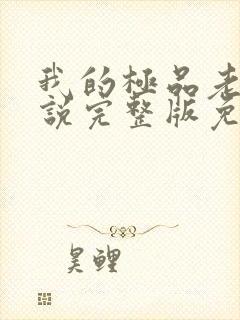 我的極品老
說完整版免
昊鲤